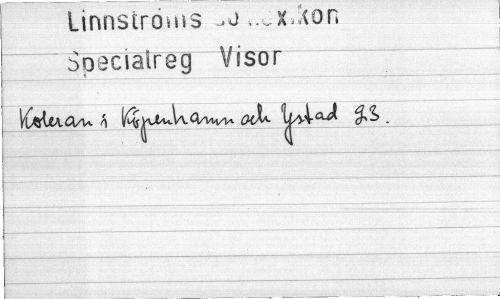 Linnströms lexikon
Specialreg Visor
Koleran i Köpenhamn och Ystad 93.